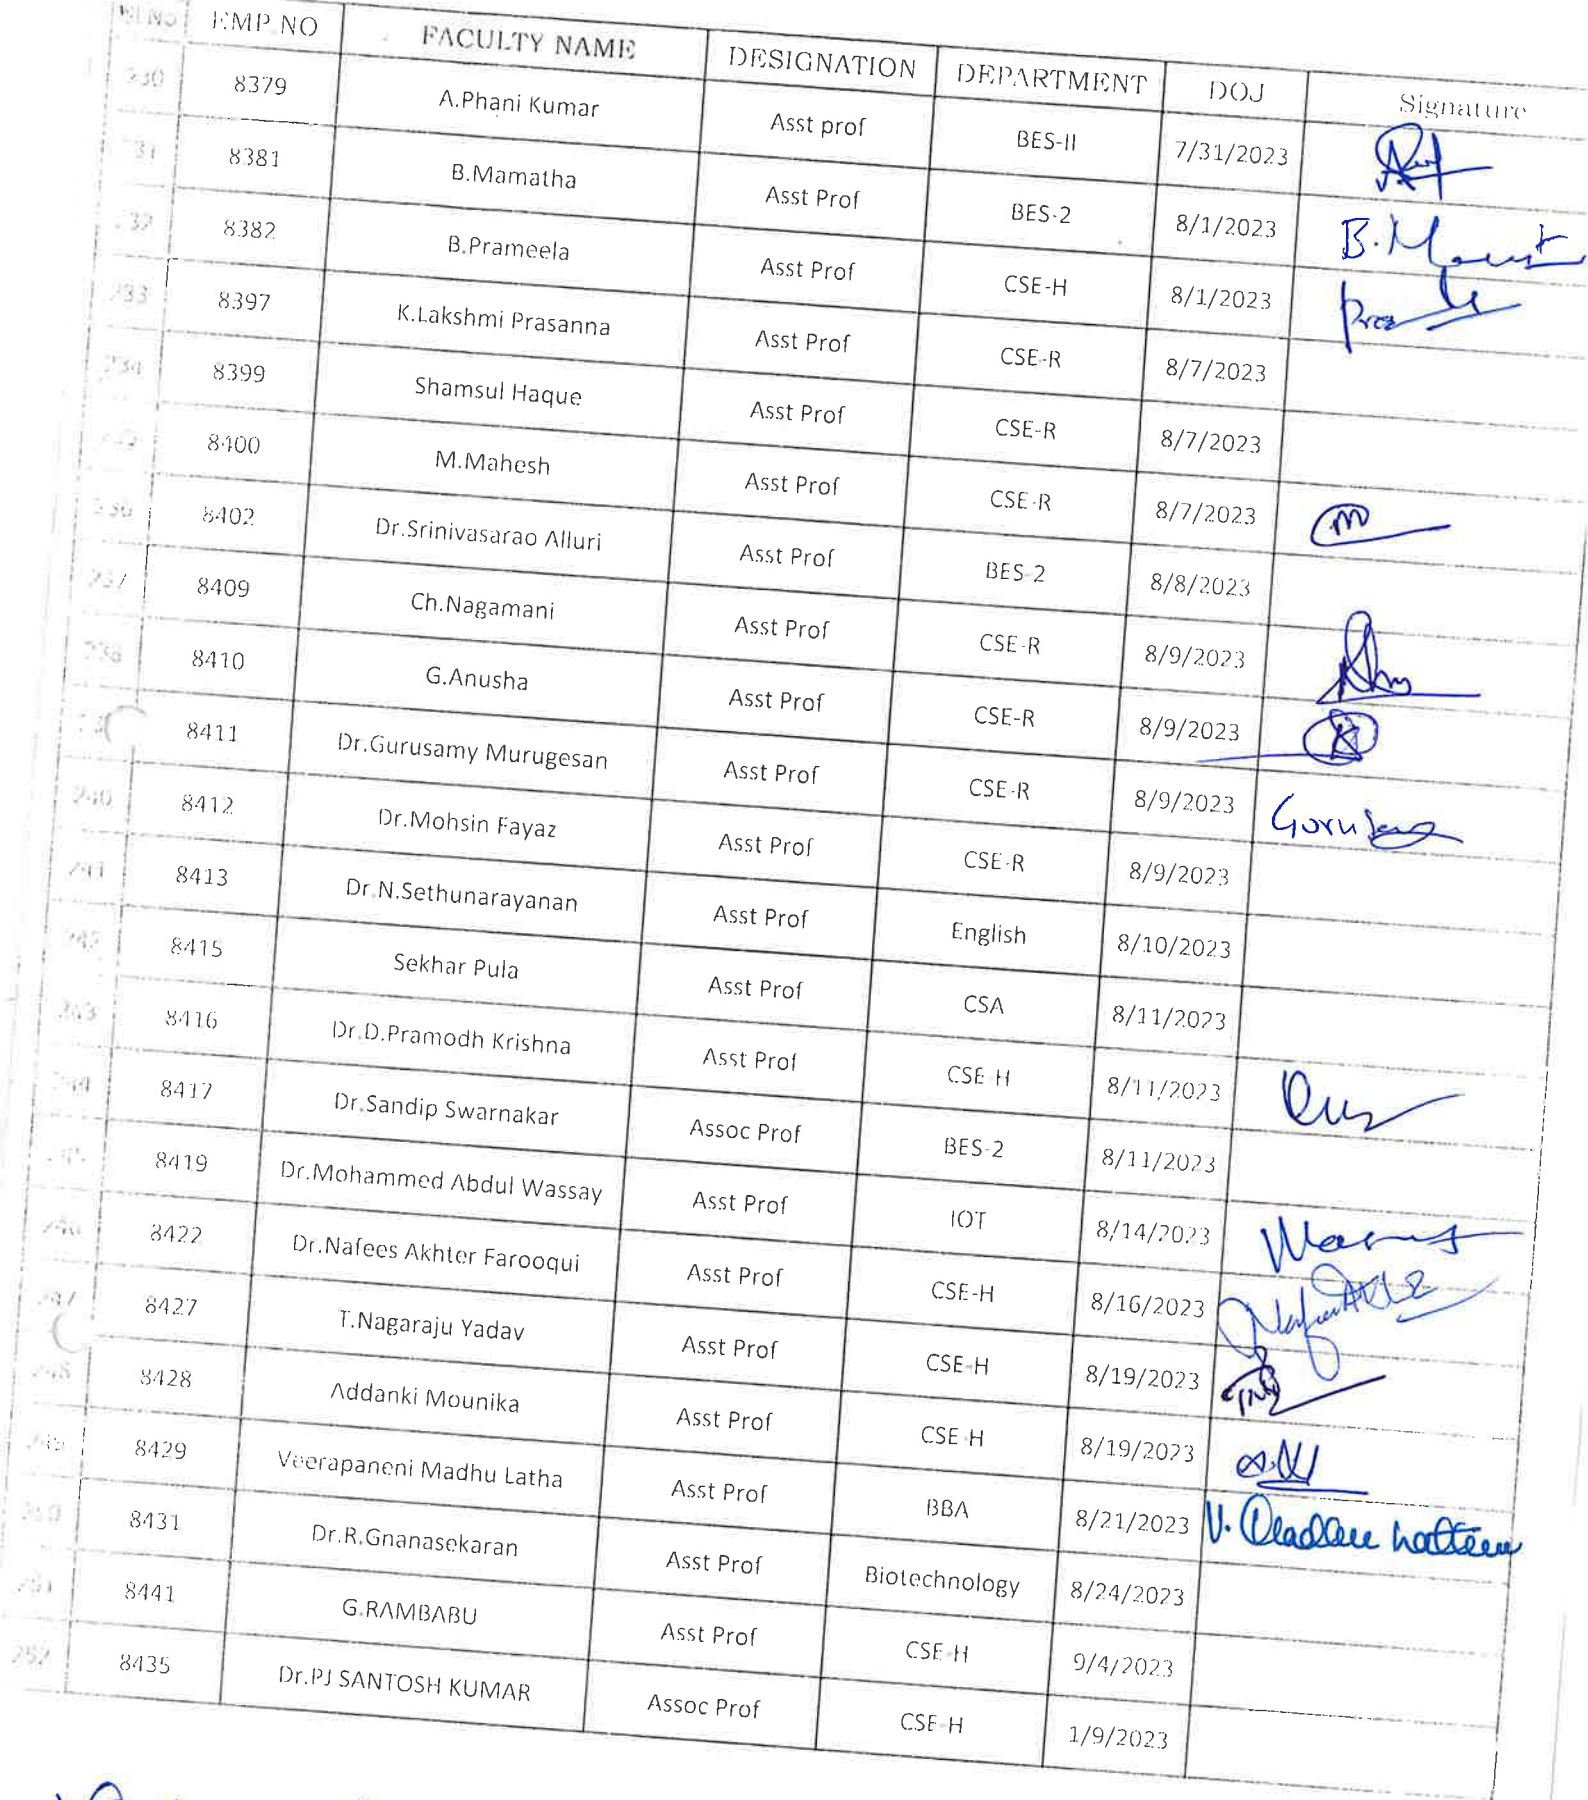 Sl No EMP NO FACULTY NAME DESIGNATION DEPARTMENT DOJ Signature
230 8379 A.Phani Kumar Asst prof BES-II 7/31/2023
231 8381 B.Mamatha Asst Prof BES-2 8/1/2023
232 8382 B.Prameela Asst Prof CSE-H 8/1/2023
233 8397 K.Lakshmi Prasanna Asst Prof CSE-R 8/7/2023
234 8399 Shamsul Haque Asst Prof CSE-R 8/7/2023
235 8400 M.Mahesh Asst Prof CSE-R 8/7/2023
236 8402 Dr.Srinivasarao Alluri Asst Prof BES-2 8/8/2023
237 8409 Ch.Nagamani Asst Prof CSE-R 8/9/2023
238 8410 G.Anusha Asst Prof CSE-R 8/9/2023
8411 Dr.Gurusamy Murugesan Asst Prof CSE-R 8/9/2023
240 8412 Dr.Mohsin Fayaz Asst Prof CSE-R 8/9/2023
241 8413 Dr.N.Sethunarayanan Asst Prof English 8/10/2023
242 8415 Sekhar Pula Asst Prof CSA 8/11/2023
243 8416 Dr.D.Pramodh Krishna Asst Prof CSE-H 8/11/2023
244 8417 Dr.Sandip Swarnakar Assoc Prof BES-2 8/11/2023
245 8419 Dr.Mohammed Abdul Wassay Asst Prof IOT 8/14/2023
246 8422 Dr.Nafees Akhter Farooqui Asst Prof CSE-H 8/16/2023
247 8427 T.Nagaraju Yadav Asst Prof CSE-H 8/19/2023
248 8428 Addanki Mounika Asst Prof CSE-H 8/19/2023
249 8429 Veerapaneni Madhu Latha Asst Prof BBA 8/21/2023
250 8431 Dr.R.Gnanasekaran Asst Prof Biotechnology 8/24/2023
251 8441 G.RAMBABU Asst Prof CSE-H 9/4/2023
252 8435 Dr.PJ SANTOSH KUMAR Assoc Prof CSE-H 1/9/2023